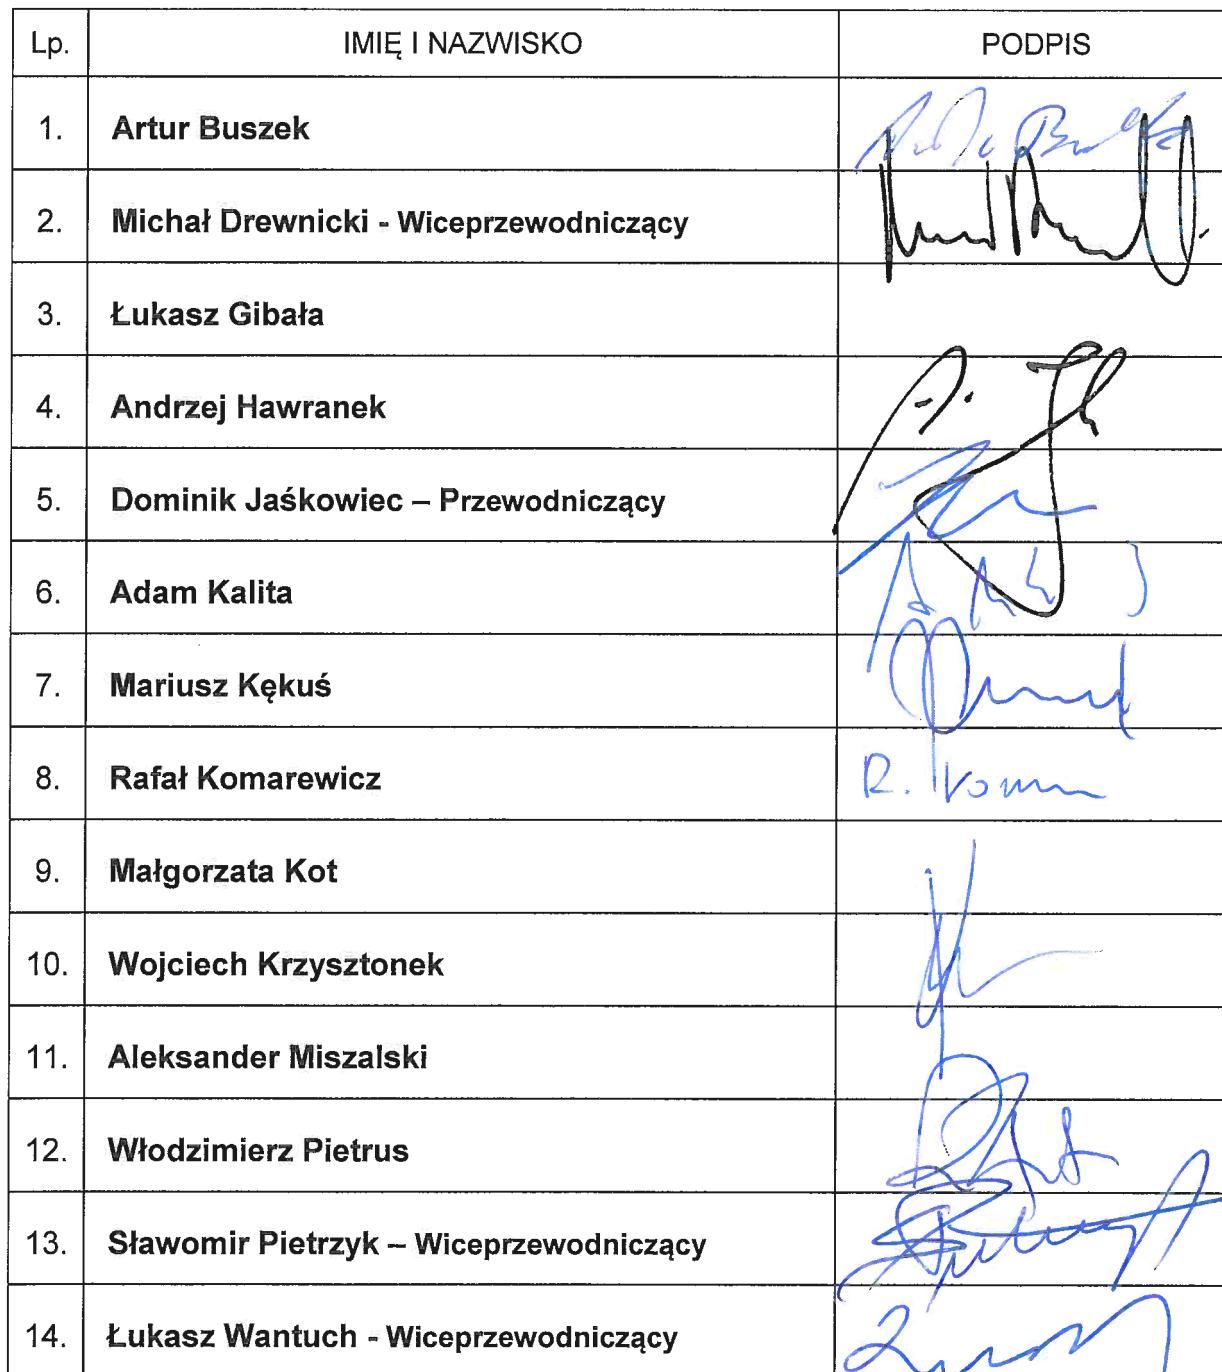 Lp. IMIĘ I NAZWISKO PODPIS
1. Artur Buszek
2. Michał Drewnicki - Wiceprzewodniczący
3. Łukasz Gibała
4. Andrzej Hawranek
5. Dominik Jaśkowiec – Przewodniczący
6. Adam Kalita
7. Mariusz Kękuś
8. Rafał Komarewicz R.
9. Małgorzata Kot
10. Wojciech Krzysztonek
11. Aleksander Miszalski
12. Włodzimierz Pietrus
13. Sławomir Pietrzyk – Wiceprzewodniczący
14. Łukasz Wantuch - Wiceprzewodniczący